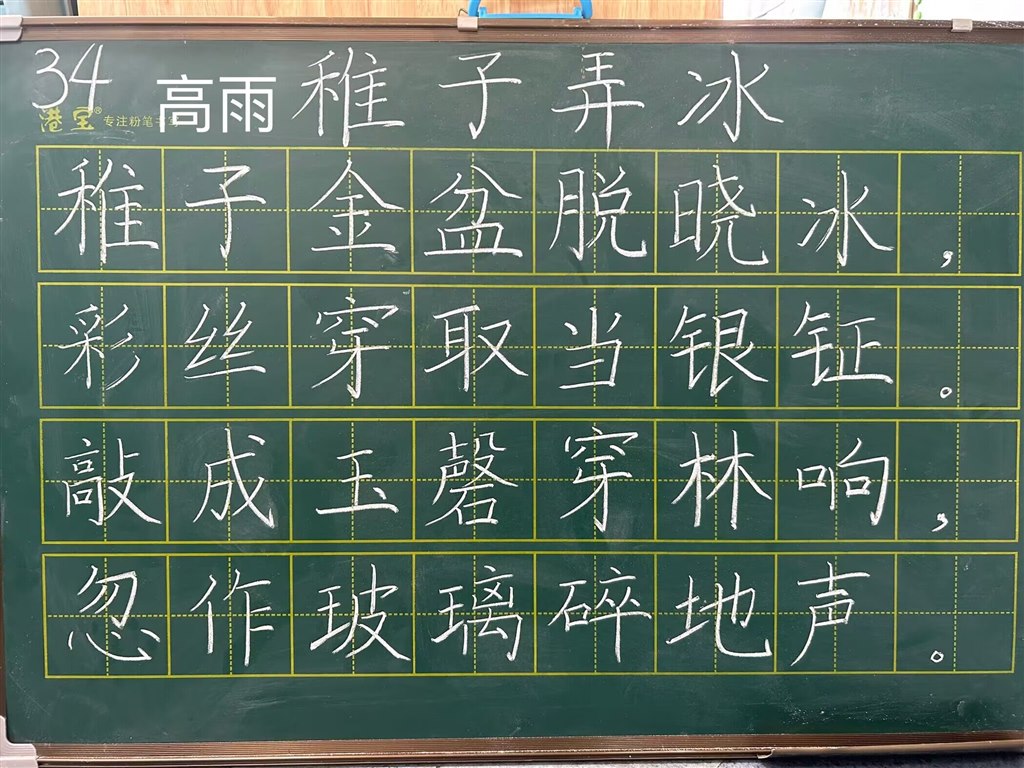 34 高雨 稚子弄冰
港宝® 专注粉笔
稚子金盆脱晓冰,
彩丝穿取当银钲。
敲成玉磬穿林响,
忽作玻璃碎地声。